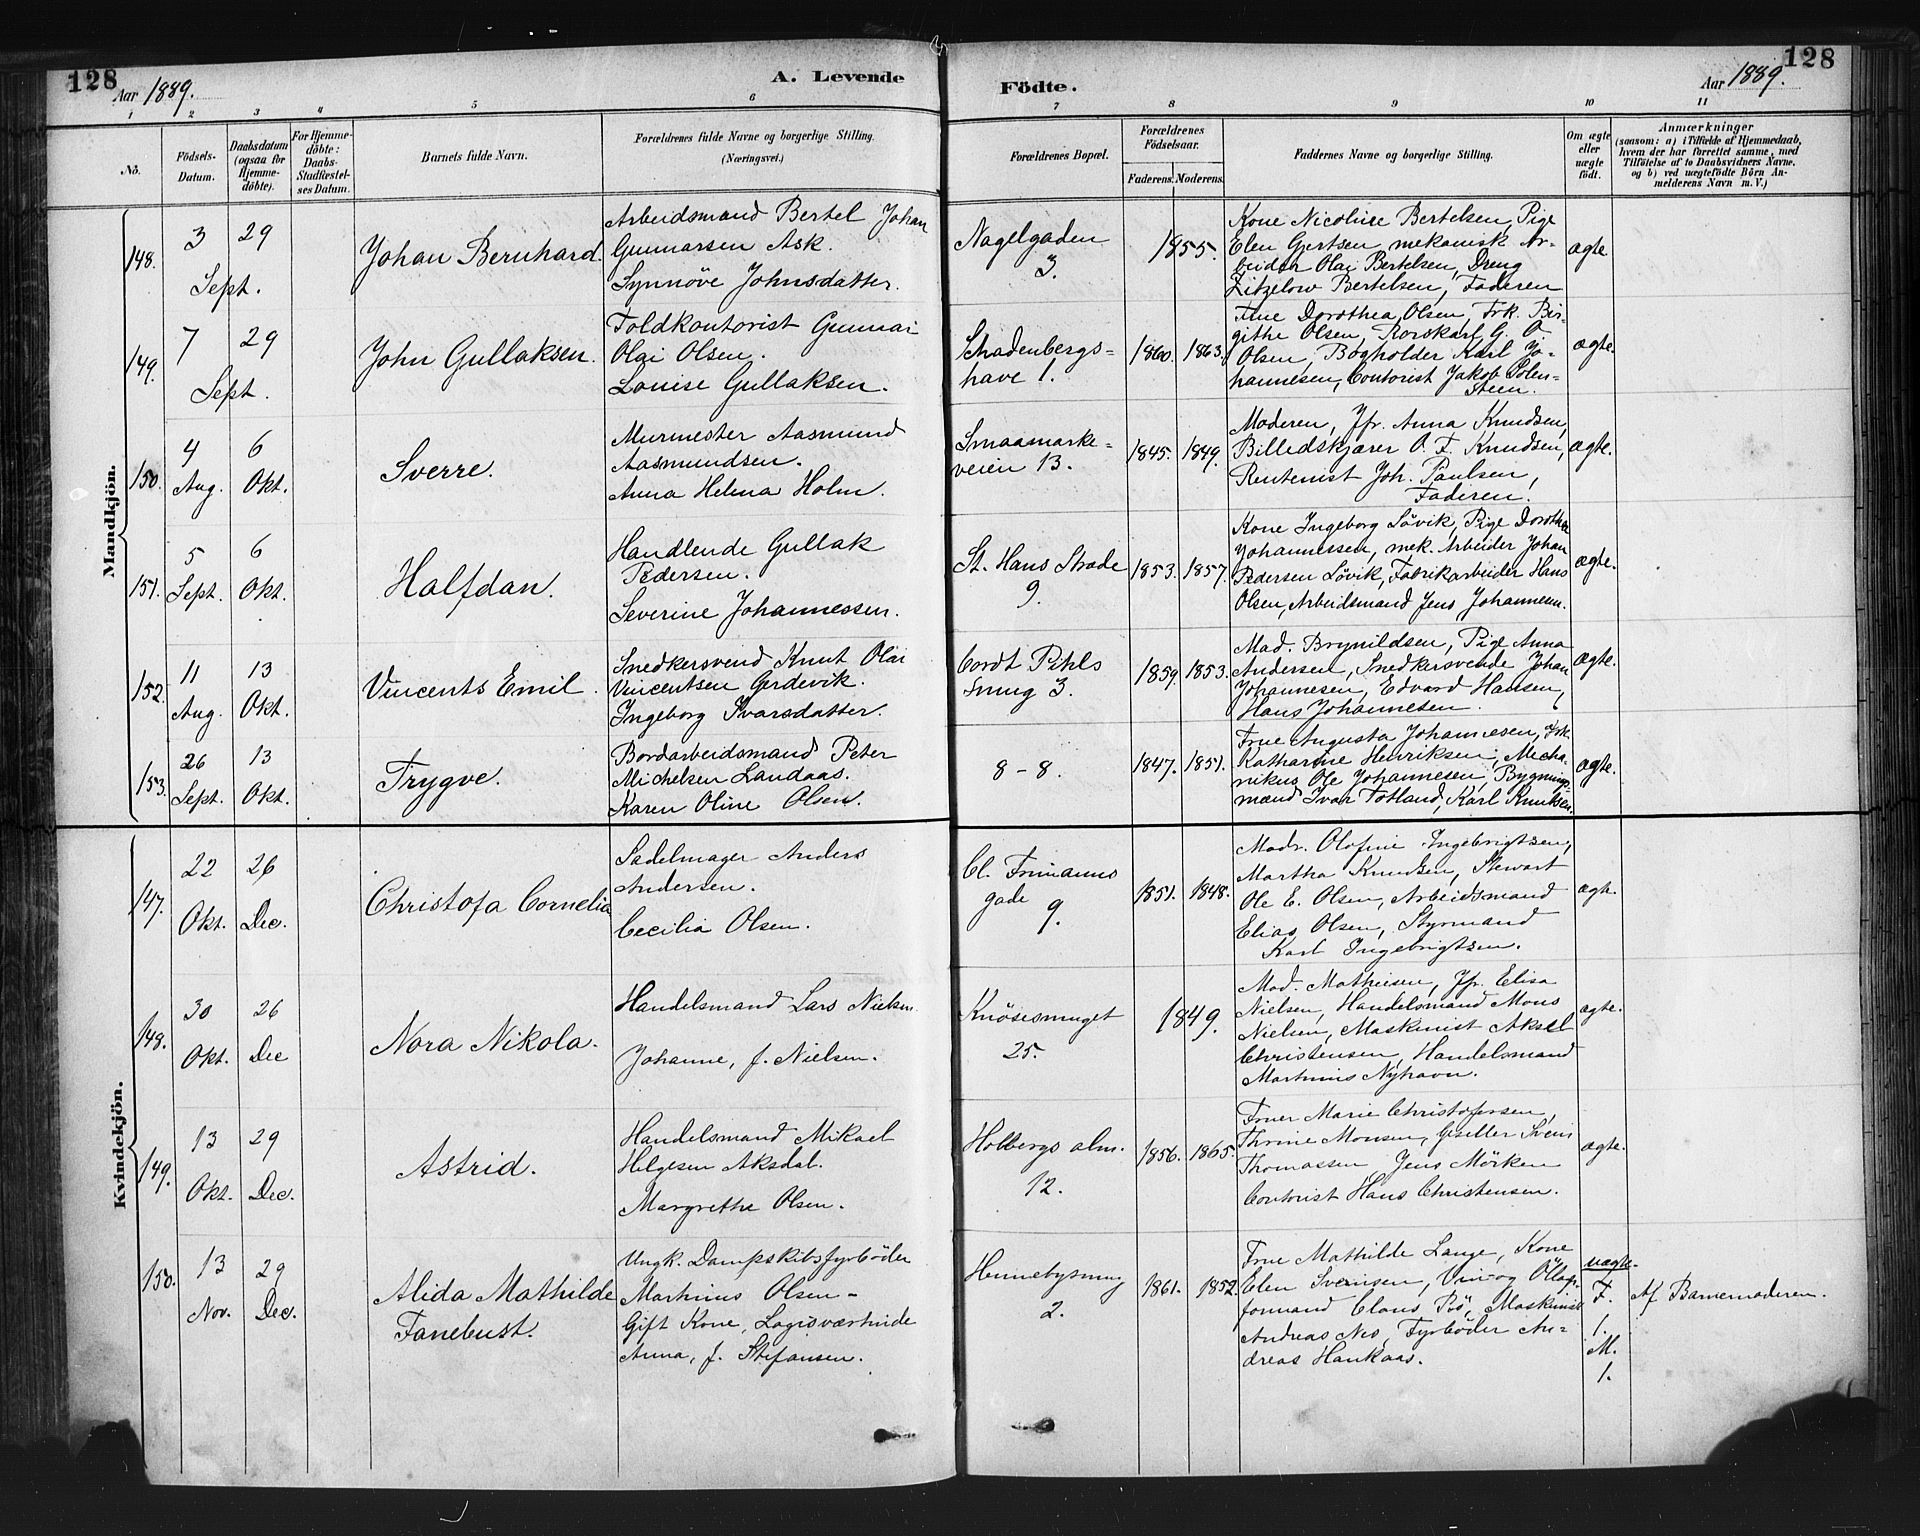 128
Aar 1889.
A. Levende
Födte.
Aar 1889.
128
1 2 3 4 5 6 7 8 9 10 11
No.
Födsels-
Datum.
Daabsdatum
(ogsaa for
Hjemme-
döbte).
For Hjemme-
döbte:
Daabs-
Stadfæstel-
ses Datum.
Barnets fulde Navn.
Forældrenes fulde Navne og borgerlige Stilling.
(Næringsvei.)
Forældrenes Bopæl.
Forældrenes
Födselsaar.
Faderens. Moderens.
Faddernes Navne og borgerlige Stilling.
Om ægte
eller
uægte
födt.
Anmærkninger
(saasom: a) i Tilfælde af Hjemmedaab,
hvem der har forrettet samme, med
Tilföielse af to Daabsvidners Navne,
og b) ved uægtefödte Börn An-
melderens Navn m. V.)
Mandkjön.
148.
3 29
Sept.
Johan Bernhard.
Arbeidsmand Bertel Johan
Gunnarsen Ask.
Synnöve Johnsdatter.
Nagelgaden
3.
1855.
Kone Nicoline Bertelsen, Pige
Elen Gjertsen, mekanisk Ar-
beider Olai Bertelsen, Dreng
Zitzelow Bertelsen, Faderen
ægte
149.
7 29
Sept.
John Gullaksen.
Toldkontorist Gunnar
Olai Olsen.
Louise Gullaksen.
Schadenbergs-
have 1.
1860. 1863.
Frue Dorothea Olsen, Frk. Bir-
githe Olsen, Rorskarl G. O.
Olsen, Bogholder Karl Jo-
hannesen, Contorist Jakob Polen-
Steen.
ægte.
150.
4 6
Aug. Okt.
Sverre.
Murmester Aasmund
Aasmundsen.
Anna Helena Holm.
Smaamarke-
veien 13.
1845. 1849.
Moderen, Jfr. Anna Knudsen,
Billedskjærer O. F. Knudsen,
Rentenist Joh. Paulsen,
Faderen.
ægte.
151.
5 6
Sept. Okt.
Halfdan.
Handlende Gullak
Pedersen.
Severine Johannessen.
St. Hans Strade
9.
1853. 1857.
Kone Ingeborg Lövik, Pige Dorothea
Johannessen, mek. Arbeider Johan
Pedersen Lövik, Fabrikarbeider Hans
Olsen, Arbeidsmand Jens Johannesen.
ægte.
152.
11 13
Aug. Okt.
Vincents Emil.
Snedkersvend Knut Olai
Vincentsen Gerdevik.
Ingeborg Ivarsdatter.
Cordt Pihls
Smug 3.
1859. 1853.
Mad. Brynildsen, Pige Anna
Andersen, Snedkersvende Johan
Johannesen, Edvard Hansen,
Hans Johannesen.
ægte.
153.
26 13
Sept. Okt.
Trygve.
Bordarbeidsmand Peter
Michelsen Landaas.
Karen Oline Olsen.
8 - 8.
1847. 1851.
Frue Augusta Johannesen, Frk
Katharine Henriksen, Mecha-
nikus Ole Johannesen, Bygnings-
mænd Ivar Totland, Karl Knutsen.
ægte.
Kvindekjön.
147.
22 26
Okt. Dec.
Christofa Cornelia
Sadelmager Anders
Andersen.
Cecilia Olsen.
Cl. Frimanns
gade
9.
1851. 1848.
Madr. Olofine Ingebrigtsen,
Martha Knudsen, Stewart
Ole E. Olsen, Arbeidsmand
Elias Olsen, Styrmand
Karl Ingebrigtsen.
ægte.
148.
30 26
Okt. Dec
Nora Nikola.
Handelsmand Lars Nielsen
Johanne, f. Nielsen.
Knösesmuget
25.
1849.
Mad. Mathiesen, Jfr. Elisa
Nielsen, Handelsmand Mons
Nielsen, Maskinist Aksel
Christensen, Handelsmand
Martinus Nyhavn.
ægte.
149.
13 29
Okt. Dec.
Astrid.
Handelsmand Mikael
Helgesen Aksdal.
Margrethe Olsen.
Holbergs alm.
12.
1856. 1865.
Fruer Marie Christofersen,
Thrine Monsen, Giseller Svein
Thomassen, Jens Mörken
Contorist Hans Christensen.
ægte.
150.
13 29
Nov. Dec.
Alida Mathilde
Fanebust.
Ungk. Dampskibsfyrböder
Martinus Olsen -
Gift Kone, Logisværtinde
Anna, f. Stefansen.
Hennebysmug
2.
1861. 1852.
Frue Mathilde Lange, Kone
Elen Svensen, Vin- og Ölop-
formand Claus Böö, Maskinist
Andreas Nes, Fyrböder An-
dreas Haukaas.
uægte.
F.
1.
M.
1.
Af Barnemoderen.